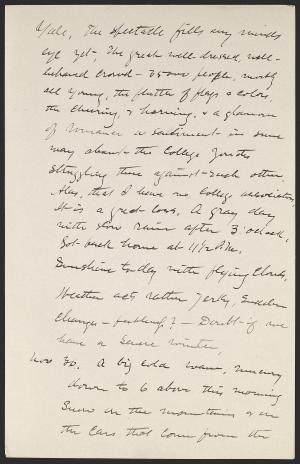 Yale, The spectacle fills my minds
eye yet, The great well-dressed, well-
behaved crowd - 35000 people, mostly
all young, the flutter of flags & colors,
the cheering, & horning, & a glamour
of romance & sentiment in some
way about the College youths
struggling there against each other.
Alas, that I have no college association,
it is a great loss. A gray day
with slow rain after 3 o'clock,
Got back home at 11 1/2 P.M.
Sunshine to-day with flying clouds,
Weather acts rather jerky, sudden
changes - ? - Doubt if we
have a severe winter,
Nov 30. A big cold wave, mercury
down to 6 above this morning
Snow on the mountains & on
the cars that come from the